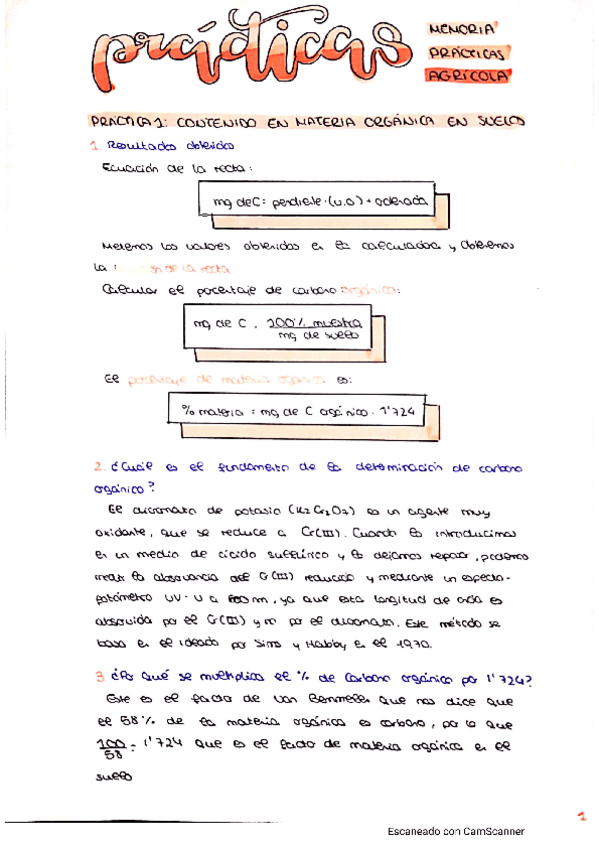 prácticas
MEMORIA
PRÁCTICAS
AGRÍCOLA
PRÁCTICA 1: CONTENIDO EN MATERIA ORGÁNICA EN SUELOS
1. Resultados obtenidos
Ecuación de la recta:
mg de C: pendiente · (u.a) + ordenada
Metemos los valores obtenidos en la calculadora y obtenemos
la de la recta
Calcular el porcentaje de carbono orgánico:
mg de C . 100% muestra
mg de suelo
El porcentaje de materia orgánica es:
% materia = mg de C orgánico · 1'724
2. ¿Cuál es el fundamento de la determinación de carbono
orgánico?
El dicromato de potasio (K2Cr2O7) es un agente muy
oxidante, que se reduce a Cr(III). Cuando lo introducimos
en un medio de ácido sulfúrico y lo dejamos reposar, podemos
medir la absorvancia del Cr(III) reducido y mediante un espectro-
fotómetro UV-V a nm, ya que esta longitud de onda es
absorvida por el Cr(III) y no por el dicromato. Este método se
basa en el ideado por Sims y Habby en el 1970.
3. ¿Por qué se multiplica el % de carbono orgánico por 1'724?
Este es el factor de Van Bemmelen que nos dice que
el 58% de la materia orgánica es carbono, por lo que
100
58 = 1'724 que es el factor de materia orgánica en el
suelo
1
Escaneado con CamScanner